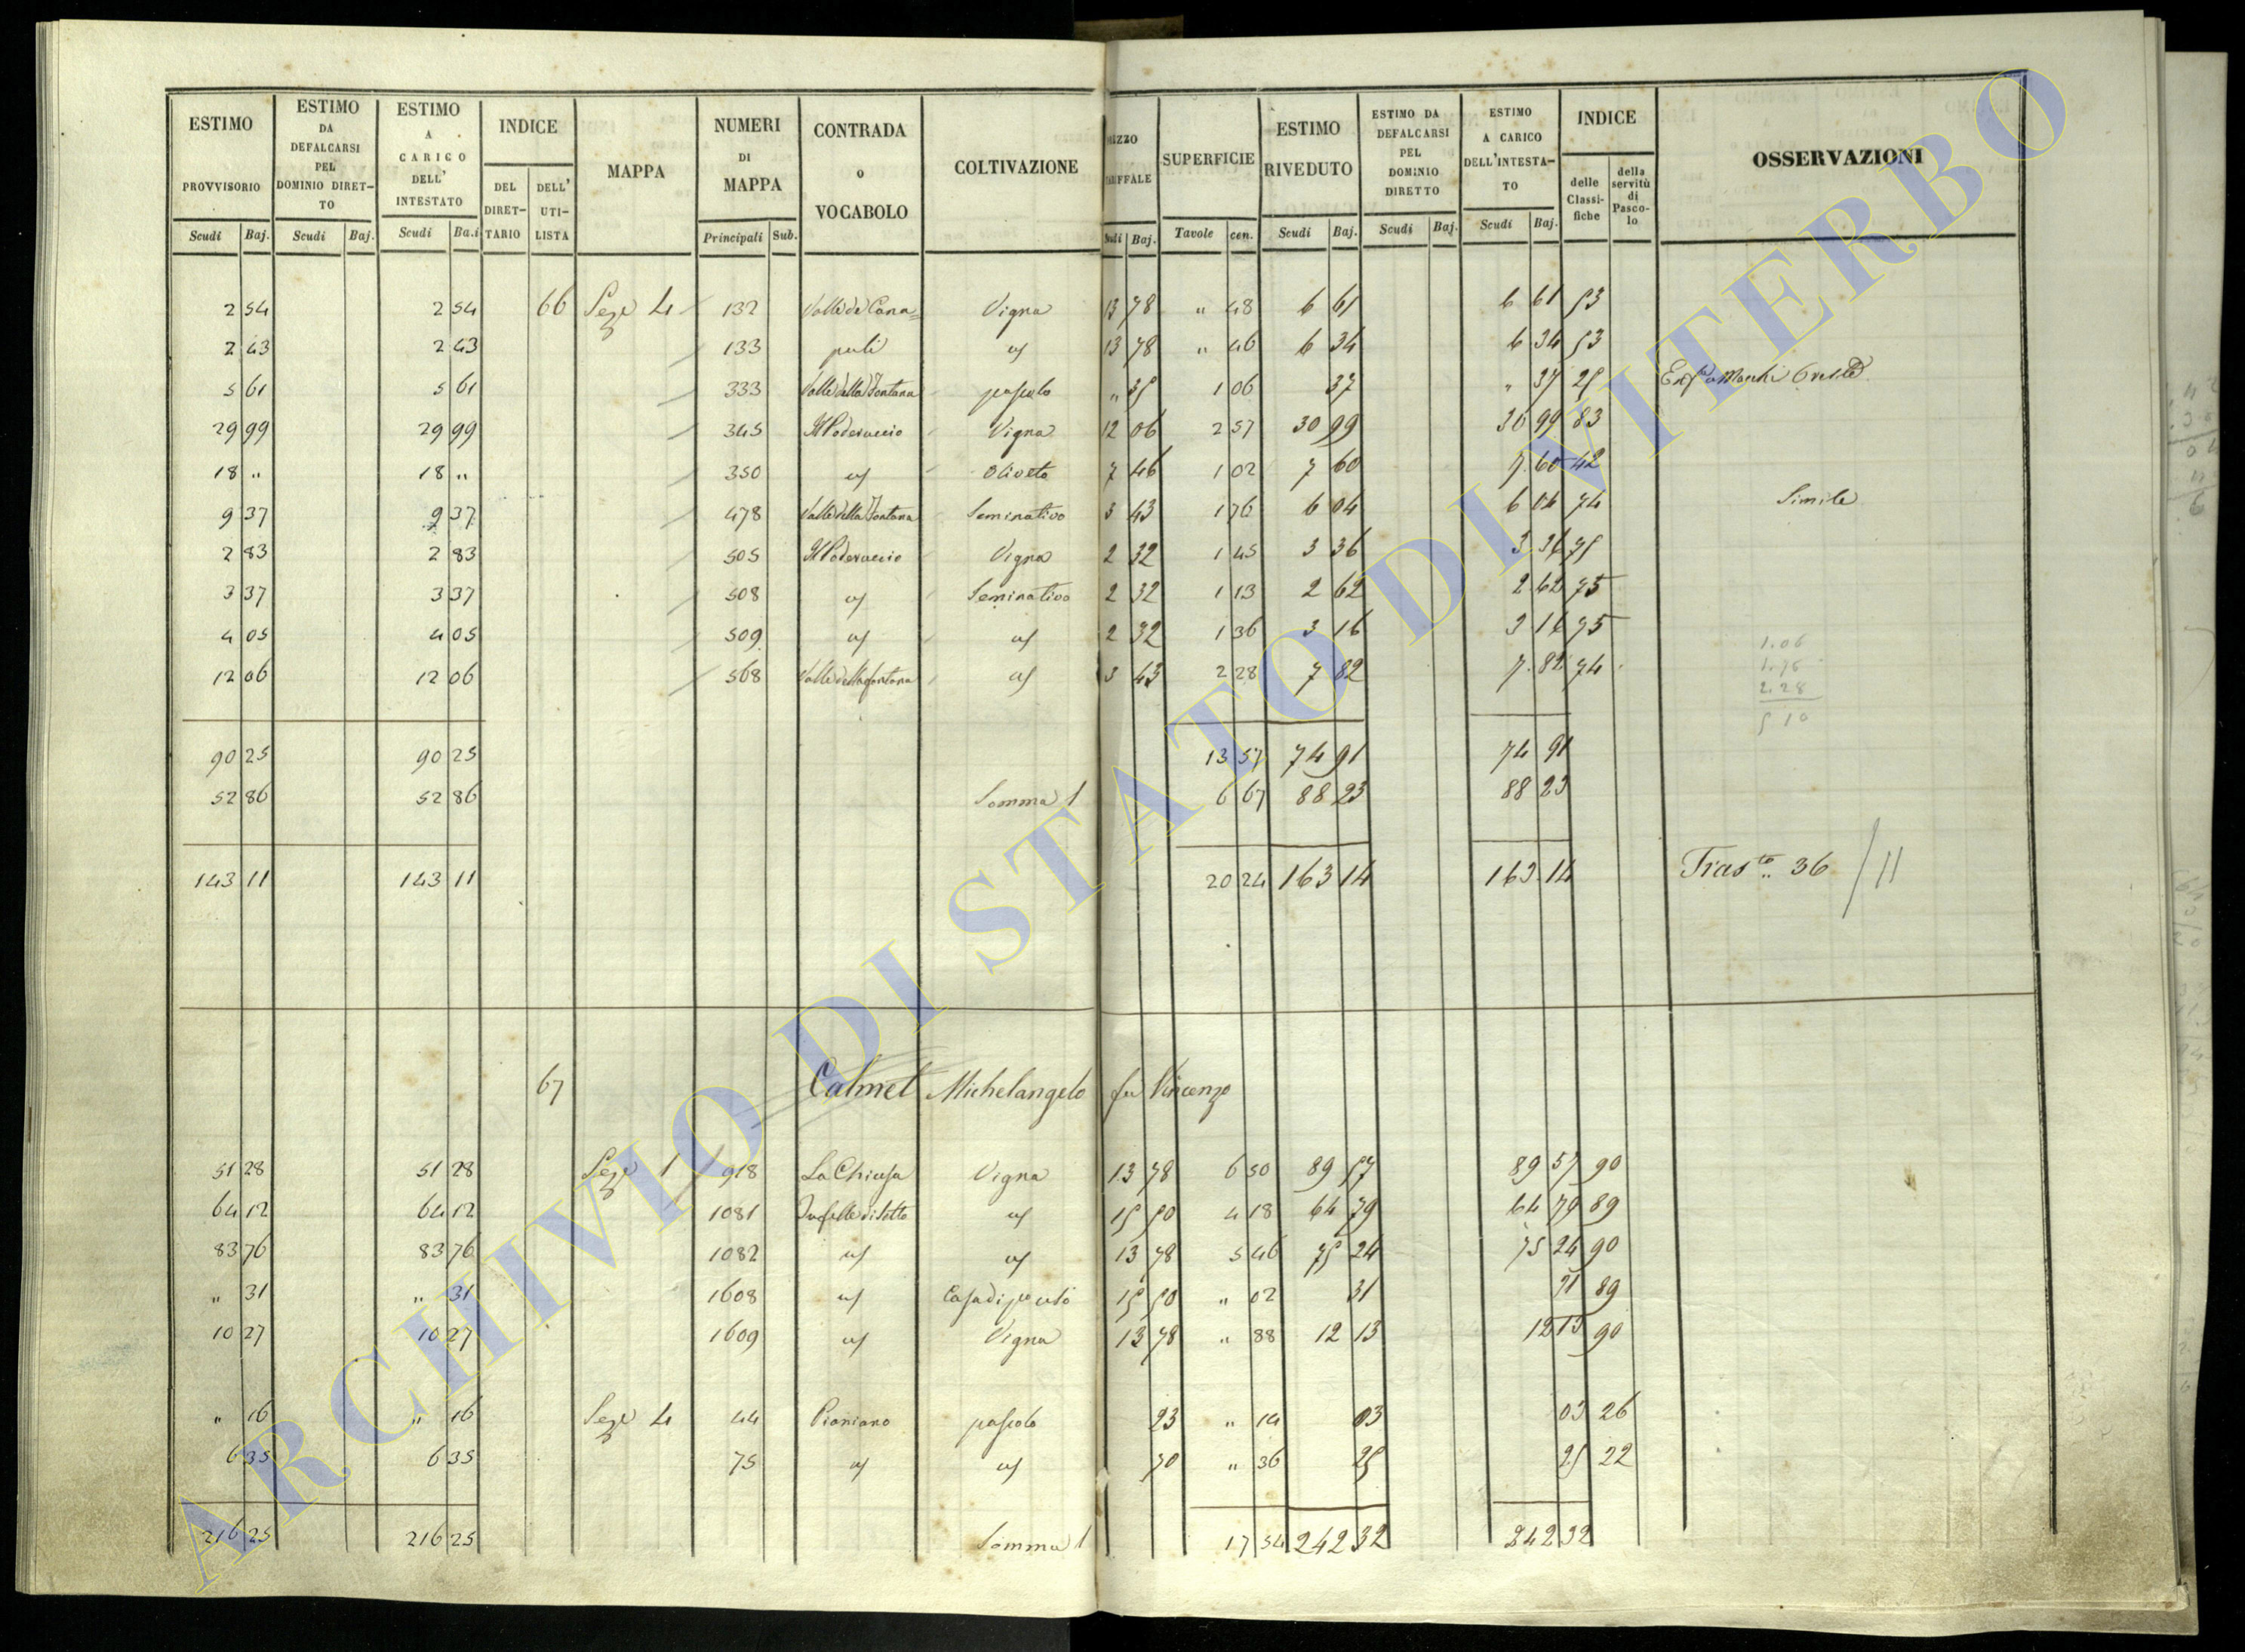 ESTIMO PROVVISORIO Scudi Baj. ESTIMO DA DEFALCARSI PEL DOMINIO DIRET-TO Scudi Baj. ESTIMO A CARICO DELL' INTESTATO Scudi Ba.i INDICE DEL DIRET-TARIO DELL' UTI-LISTA MAPPA NUMERI DI MAPPA Principali Sub. CONTRADA o VOCABOLO COLTIVAZIONE TARIFFALE Baj. SUPERFICIE Tavole cen. ESTIMO RIVEDUTO Scudi Baj. ESTIMO DA DEFALCARSI PEL DOMINIO DIRETTO Scudi Baj. ESTIMO A CARICO DELL'INTESTA-TO Scudi Baj. INDICE delle Classi-fiche della servitù di Pasco-lo OSSERVAZIONI
2 54 2 54 66 Sez.e 4 132 Valle de Cana= Vigna 13 78 " 48 6 61 6 61 53
2 43 2 43 133 puli " 13 78 " 46 6 34 6 34 53
5 61 5 61 333 Valle della Fontana pascolo " 35 1 06 37 " 37 25
29 99 29 99 345 Il Poderuccio Vigna 12 06 2 57 30 99 30 99 83
18 " 18 " 350 Oliveto 7 46 1 02 7 60 7 60 42
9 37 9 37 478 Valle della Fontana Seminativo 3 43 1 76 6 04 6 04 74 Simile
2 83 2 83 505 Il Poderuccio Vigna 2 32 1 45 3 36 3 36 75
3 37 3 37 508 Seminativo 2 32 1 13 2 62 2 62 75
4 05 4 05 509 2 32 1 36 3 16 3 16 75
12 06 12 06 568 Valle della fontana 3 43 2 28 7 82 7 82 74
1.06
1.76
2.28
5 10
90 25 90 25 13 57 74 91 74 91
52 86 52 86 Somma 1 6 67 88 23 88 23
143 11 143 11 20 24 163 14 163 14 Tras.to 36 / 11
67 Calmet Michelangelo fu Vincenzo
51 28 51 28 Sez.e 1 918 La Chiusa Vigna 13 78 6 50 89 57 89 57 90
64 12 64 12 1081 di Sotto 15 50 4 18 64 79 64 79 89
83 76 83 76 1082 13 78 5 46 75 24 75 24 90
" 31 " 31 1608 Casa di 15 50 " 02 31 31 89
10 27 10 27 1609 Vigna 13 78 " 88 12 13 12 13 90
" 16 " 16 Sez.e 4 44 Pianiano pascolo 23 " 14 03 03 26
6 35 6 35 75 70 " 36 25 25 22
216 25 216 25 Somma 1 17 54 242 32 242 32
ARCHIVIO DI STATO DI VITERBO